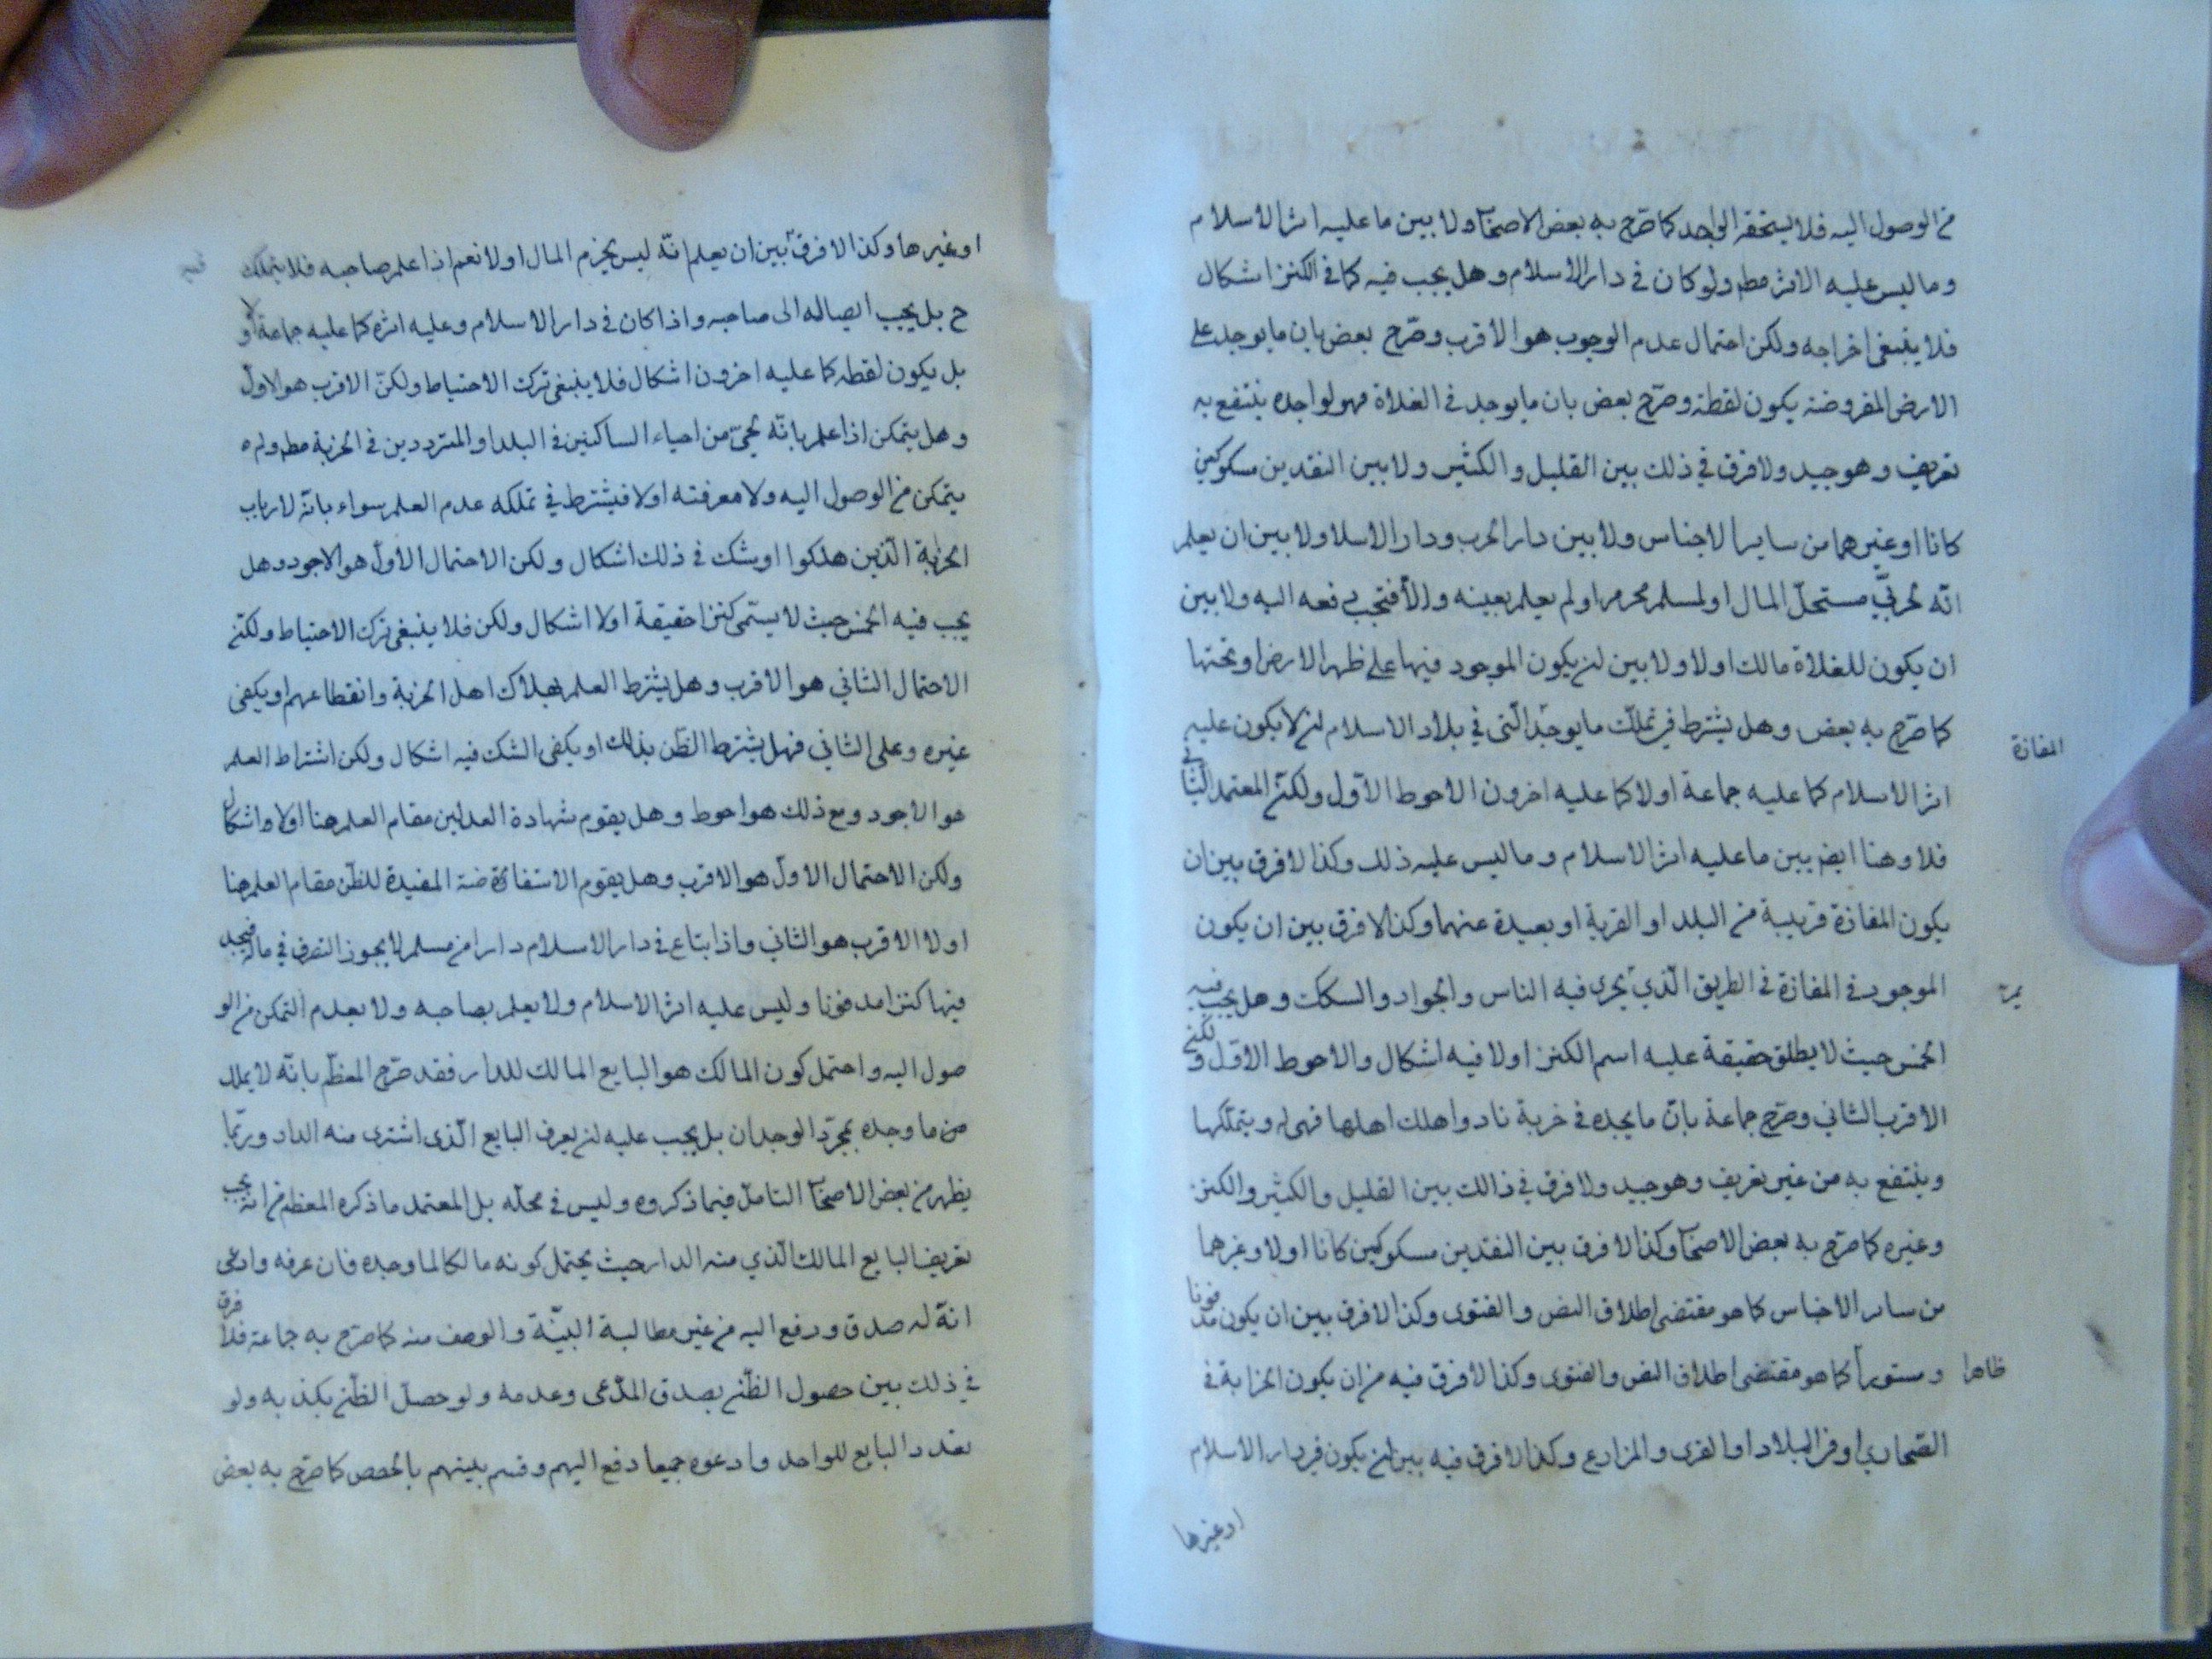 من الوصول اليه فلا يستحقه الواجد كما صرّح به بعض الاصحاب ولا بين ما عليه اثر الاسلام
وما ليس عليه الاثر مطم ولو كان في دار الاسلام وهل يجب فيه كما في الكنز اشكال
فلا ينبغى اخراجه ولكن احتمال عدم الوجوب هو الاقرب وصرّح بعض بان ما يوجد على
الارض المفروضة يكون لقطة وصرّح بعض بان ما يوجد في الفلاة فهو لواجده ينتفع به
تعريف وهو جيد ولا فرق في ذلك بين القليل والكثير ولا بين النقدين مسكوكين
كانا او غيرهما من ساير الاجناس ولا بين دار الحرب ودار الاسلا ولا بين ان يعلم
انّه لحربىّ مستحلّ المال او لمسلم محرم او لم يعلم بعينه والّا فتجب دفعه اليه ولا بين
ان يكون للفلاة مالك اولا ولا بين ان يكون الموجود فيها على ظهر الارض او تحتها
كما صرّح به بعض وهل يشترط في تملّك ما يوجد الّتى في بلاد الاسلام ان لا يكون عليه
المفازة
اثر الاسلام كما عليه جماعة اولا كما عليه اخرون الاحوط الاوّل ولكنّ المعتمد الثاني
فلا وهنا ايضم بين ما عليه اثر الاسلام وما ليس عليه ذلك وكذا لا فرق بين ان
يكون المفازة قريبة من البلد او القرية او بعيدة عنهما وكذا لا فرق بين ان يكون
الموجود في المفازة في الطريق الّذي يجرى فيه الناس والجواد والسكك وهل يجب فيه
يمرّ
الخمس حيث لا يطلق حقيقة عليه اسم الكنز اولا فيه اشكال والاحوط الاوّل ولكنّ
الاقرب الثاني وصرّح جماعة بانّ ما يجده في خربة نادوا هلك اهلها فهى له ويتملّكها
وينتفع به من غير تعريف وهو جيد ولا فرق في ذالك بين القليل والكثير والكنز
وغيره كما صرّح به بعض الاصحاب وكذا لا فرق بين النقدين مسكوكين كانا اولا وغيرهما
من ساير الاجناس كما هو مقتضى اطلاق النص والفتوى وكذا لا فرق بين ان يكون مدفونا
ظاهرا
ومستوراً كما هو مقتضى اطلاق النص والفتوى وكذا لا فرق فيه من ان يكون الخرابة في
الصّحارى او في البلاد او القرى والمزارع وكذا لا فرق فيه بين ان يكون في دار الاسلام
او غيرها
او غيرها وكذا لا فرق بين ان يعلم انّه ليس بمحترم المال اولا نعم اذا علم صاحبه فلا يتملك
ح بل يجب ايصاله الى صاحبه واذا كان في دار الاسلام وعليه اثره كما عليه جماعة اولا
بل يكون لقطه كما عليه اخرون اشكال فلا ينبغى ترك الاحتياط ولكنّ الاقرب هو الاول
وهل يتمكن اذا علم بانّه لحىّ من احياء الساكنين في البلد او المترددين في الخربة مطم ولم
يتمكن من الوصول اليه ولا معرفته اولا فيشترط في تملكه عدم العلم سواء بانّه لارباب
الخربة الّذين هلكوا او يشك في ذلك اشكال ولكن الاحتمال الاول هو الاجود وهل
يجب فيه الخمس حيث لا يسمّى كنزا حقيقة اولا اشكال ولكن فلا ينبغى ترك الاحتياط ولكنّ
الاحتمال الثاني هو الاقرب وهل يشترط العلم بهلاك اهل الخربة وانقطاعهم او يكفى
غيره وعلى الثاني فهل يشترط الظن بذلك او يكفى الشك فيه اشكال ولكن اشتراط العلم
هو الاجود ومع ذلك هو احوط وهل يقوم شهادة العدلين مقام العلم هنا اولا اشكال
ولكن الاحتمال الاول هو الاقرب وهل يقوم الاستفاضة المفيدة للظن مقام العلم هنا
اولا الاقرب هو الثاني واذا بتاع في دار الاسلام دارا من مسلم لا يجوز التصرف في ماله فيجد
فيها كنزا مدفونا وليس عليه اثر الاسلام ولا يعلم بصاحبه ولا بعدم التمكن من الو
صول اليه واحتمل كون المالك هو البايع المالك للدار فقد صرّح المعظم بانّه لا يملك
من ما وجده بمجرّد الوجدان بل يجب عليه ان يعرف البايع الّذى اشترى منه الدار وربّما
يظهر من بعض الاصحاب التامل فيما ذكروه وليس في محلّه بل المعتمد ما ذكره المعظم من انه يجب
تعريف البايع المالك الّذي منه الدار حيث يحتمل كونه مالكا لما وجده فان عرفه وادعى
انّه له صدق ودفع اليه من غير مطالبة البيّنة والوصف منه كما صرّح به جماعة فلا فرق
في ذلك بين حصول الظّن بصدق المدّعى وعدمه ولو حصل الظّن بكذبه ولو
تعدد البايع للواحد وادعوه جميعا دفع اليهم وقسم بينهم بالحصص كما صرّح به بعض